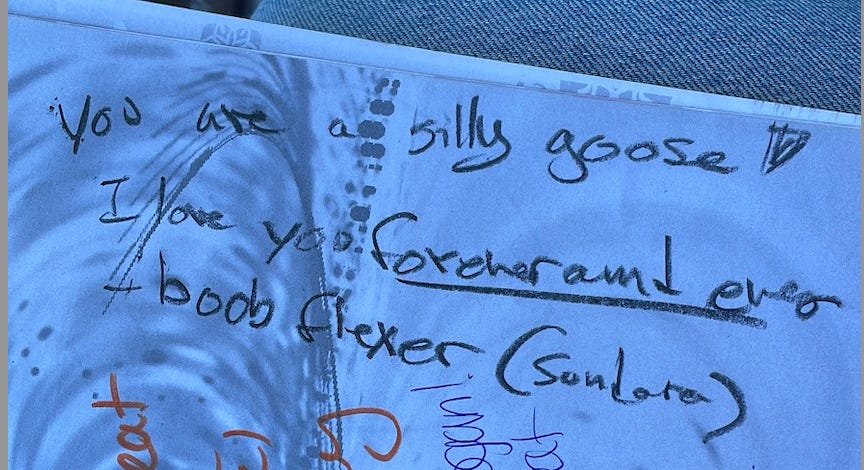 you are a silly goose
I love you forever and ever
- boob flexer (sondara)
eat